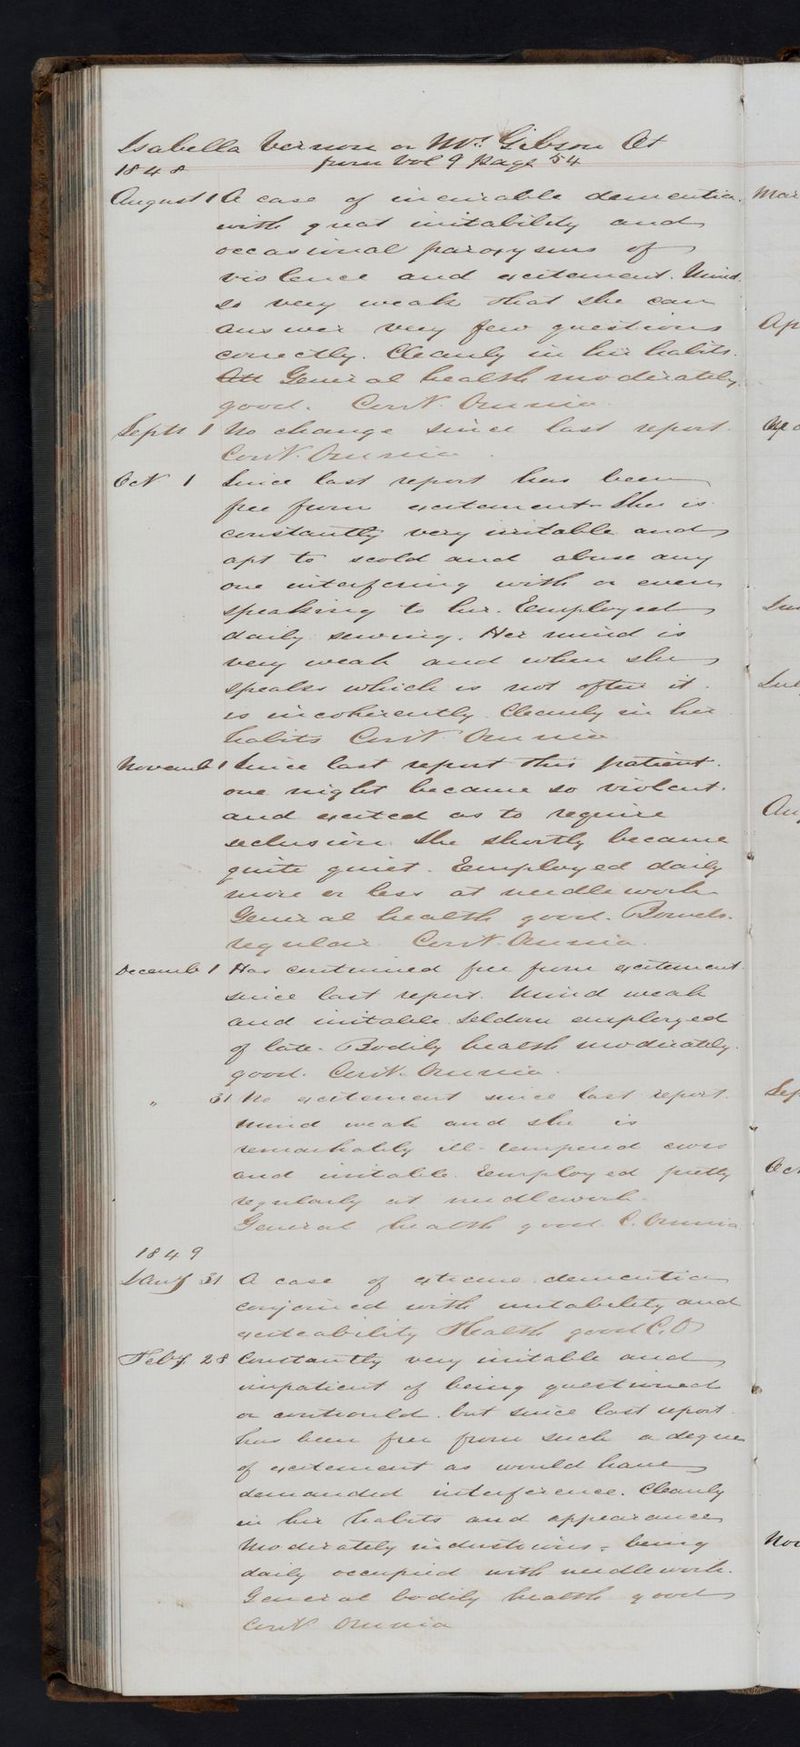 Isabella Vernon or Mrs Gibson Æt
1848 from Vol 9 page 54
August 1 A case of incurable dementia
with great irritability and
occasional paroxysms of
violence and excitement. Mind
so very weak that she can
answer very few questions
correctly. Cleanly in her habits.
General health moderately
good. Cont. Omnia
Septr 1 No change since last report.
Cont. Omnia.
Oct 1 Since last report has been
free from excitement. She is
constantly very irritable and
apt to scold and abuse any
one interfering with or even
speaking to her. Employed
daily sewing. Her mind is
very weak and when she
speaks which is not often it
is incoherently. Cleanly in her
habits Cont. Omnia
Novemb 1 Since last report this patient
one night became so violent
and excited as to require
seclusion. She shortly became
quite quiet. Employed daily
more or less at needle work
General health good. Bowels
regular. Cont. Omnia.
Decemb 1 Has continued free from excitement
since last report. Mind weak
and irritable. Seldom employed
of late. Bodily health moderately
good. Cont. Omnia.
" 31 No excitement since last report.
Mind weak and she is
remarkably ill-tempered cross
and irritable. Employed pretty
regularly at needlework.
General health good. C. Omnia
1849
Jany 31 A case of extreme dementia
conjoined with irritability and
exciteability Health good C.O
Feby 28 Constantly very irritable and
impatient of being questioned
or controuled. but since last report
has been free from such a degree
of excitement as would have
demanded interference. Cleanly
in her habits and appearance
Moderately industrious - being
daily occupied with needlework.
General bodily health good
Cont Omnia
Mar
Ap
Sep
Oct
Nov